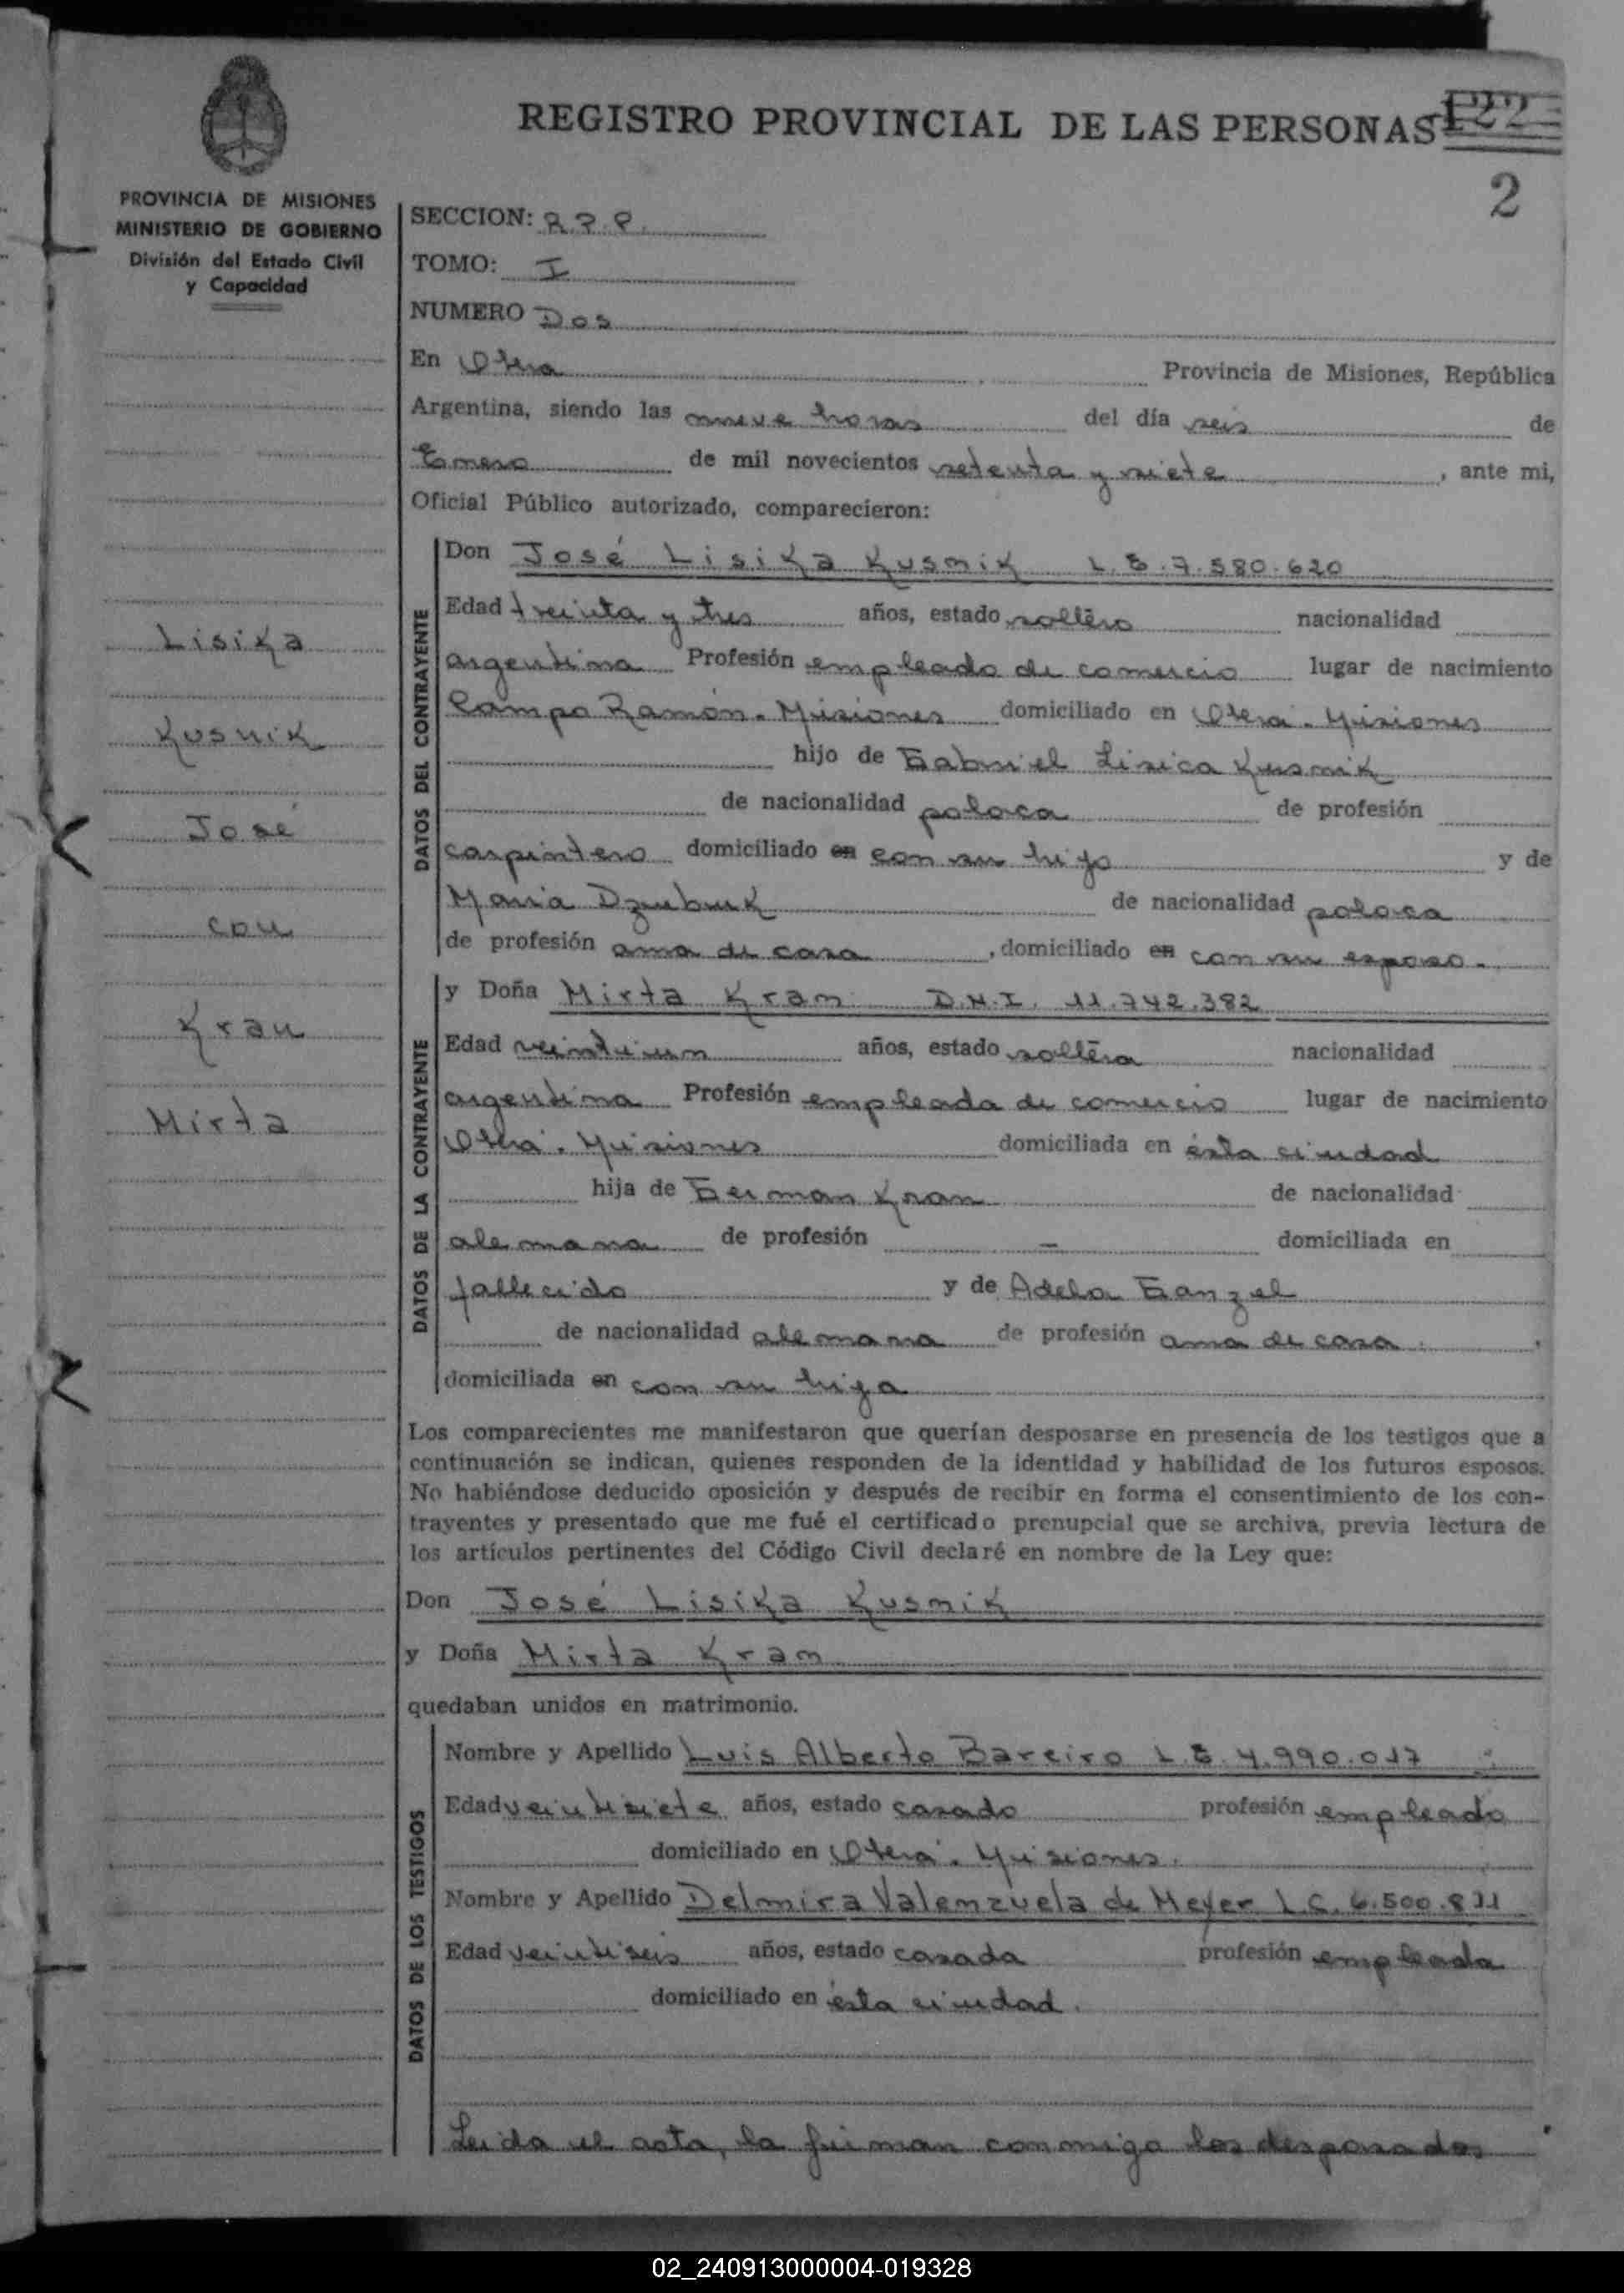 REGISTRO PROVINCIAL DE LAS PERSONAS
122
2
PROVINCIA DE MISIONES
MINISTERIO DE GOBIERNO
División del Estado Civil
y Capacidad
SECCION: R.P.P.
TOMO: I
NUMERO Dos
En Oberá Provincia de Misiones, República
Argentina, siendo las nueve horas del día seis de
Enero de mil novecientos setenta y siete, ante mi,
Oficial Público autorizado, comparecieron:
Lisika
Kusnik
José
con
Kran
Mirta
DATOS DEL CONTRAYENTE
Don José Lisika Kusnik L.E. 7.580.620
Edad treinta y tres años, estado soltero nacionalidad
argentina Profesión empleado de comercio lugar de nacimiento
Campo Ramón. Misiones domiciliado en Oberá. Misiones
hijo de Gabriel Lisica Kusnik
de nacionalidad polaca de profesión
carpintero domiciliado en con su hijo y de
Maria Dzubuk de nacionalidad polaca
de profesión ama de casa, domiciliado en con su esposo.
DATOS DE LA CONTRAYENTE
y Doña Mirta Kran D.N.I. 11.742.382
Edad veintiun años, estado soltera nacionalidad
argentina Profesión empleada de comercio lugar de nacimiento
Oberá. Misiones domiciliada en ésta ciudad
hija de German Kran de nacionalidad
alemana de profesión — domiciliada en
fallecido y de Adela Ganzel
de nacionalidad alemana de profesión ama de casa.
domiciliada en con su hija
Los comparecientes me manifestaron que querían desposarse en presencia de los testigos que a
continuación se indican, quienes responden de la identidad y habilidad de los futuros esposos.
No habiéndose deducido oposición y después de recibir en forma el consentimiento de los con-
trayentes y presentado que me fué el certificado prenupcial que se archiva, previa lectura de
los artículos pertinentes del Código Civil declaré en nombre de la Ley que:
Don José Lisika Kusnik
y Doña Mirta Kran
quedaban unidos en matrimonio.
DATOS DE LOS TESTIGOS
Nombre y Apellido Luis Alberto Bareiro L.E. 4.990.017
Edad veintisiete años, estado casado profesión empleado
domiciliado en Oberá. Misiones.
Nombre y Apellido Delmira Valenzuela de Meyer L.C. 6.500.811
Edad veintiseis años, estado casada profesión empleada
domiciliado en ésta ciudad.
Leida el acta, la firman conmigo los desposados
02_240913000004-019328